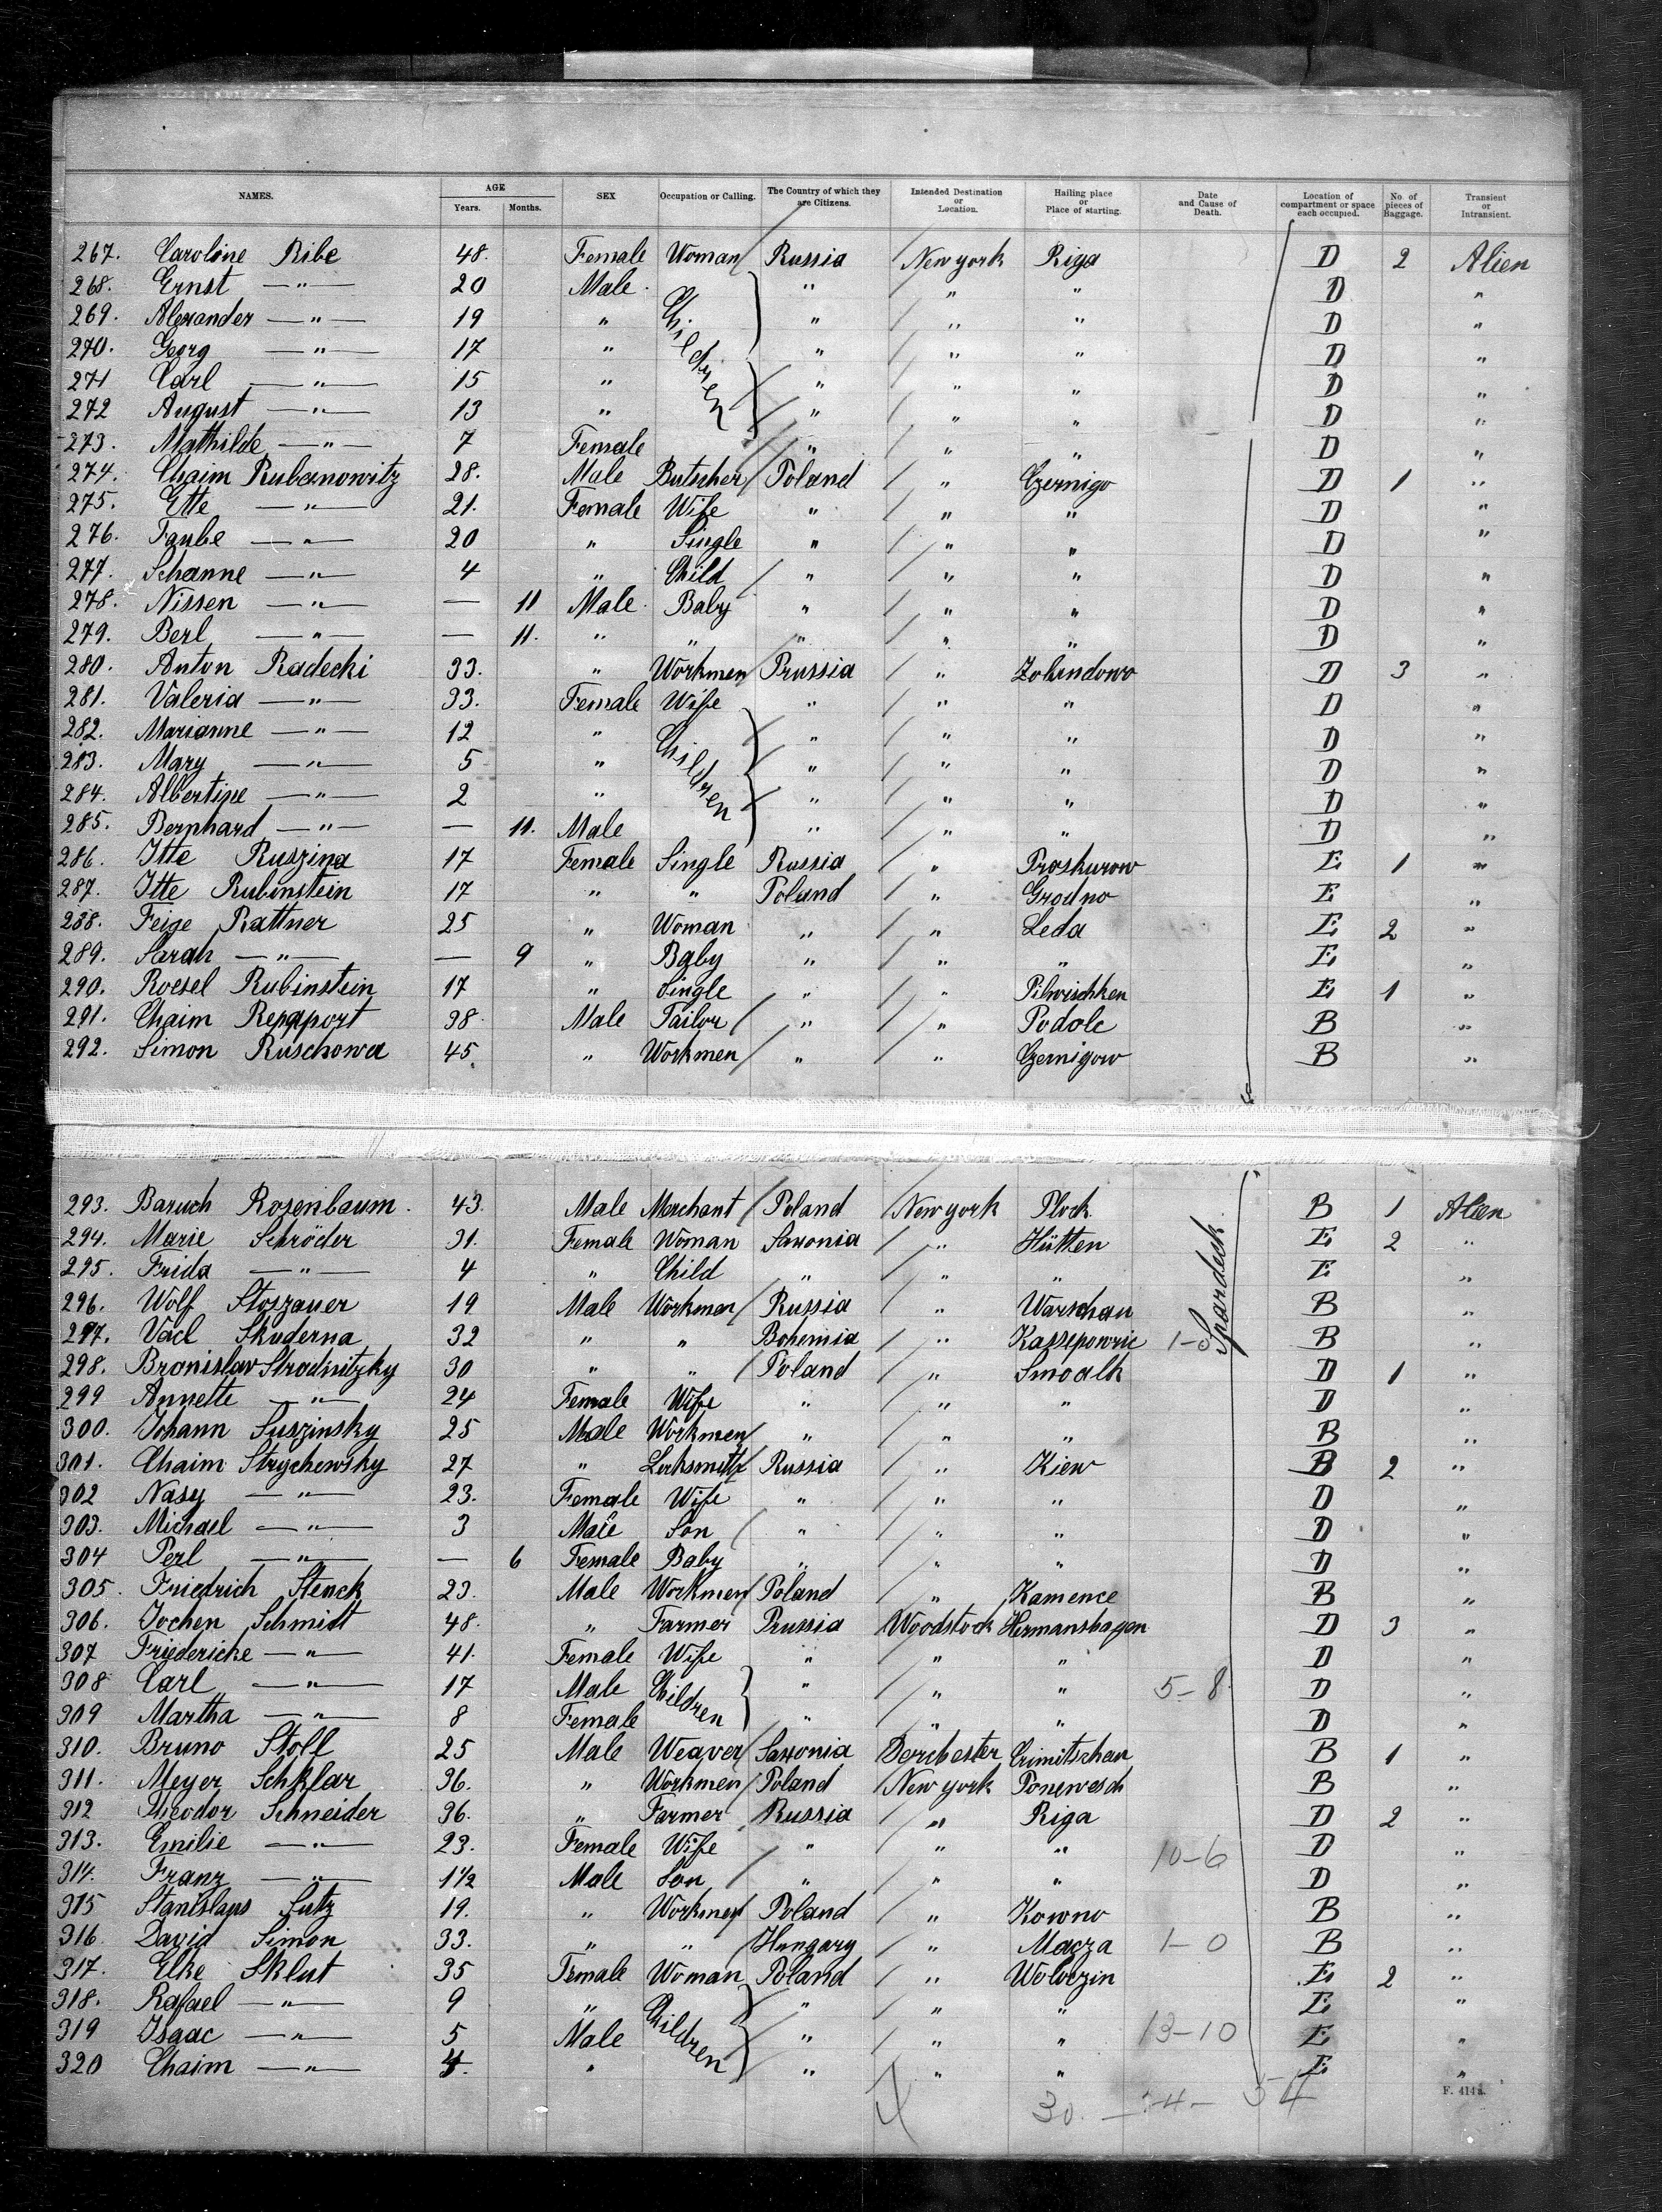 NAMES. AGE Years. Months. SEX Occupation or Calling. The Country of which they are Citizens. Intended Destination or Location. Hailing place or Place of starting. Date and Cause of Death. Location of compartment or space each occupied. No. of pieces of Baggage. Transient or Intransient.
267. Caroline Ribe 48. Female Woman Russia New york Riga D 2 Alien
268. Ernst —"— 20 Male. Children " " " D "
269. Alexander —"— 19 " " " " D "
270. Georg —"— 17 " " " " D "
271 Carl —"— 15 " " " " D "
272 August —"— 13 " " " " D "
273. Mathilde —"— 7 Female " " " D "
274. Chaim Rubanowitz 28. Male Butscher Poland " Czernigo D 1 "
275. Ette —"— 21. Female Wife " " " D "
276. Taube —"— 20 " Single " " " D "
277. Schanne —"— 4 " Child " " " D "
278. Nissen —"— — 11 Male. Baby " " " D "
279. Berl —"— — 11. " " " " " D "
280. Anton Radecki 33. " Workmen Prussia " Zolundowo D 3 "
281. Valeria —"— 33. Female Wife " " " D "
282. Marianne —"— 12 " Children " " " D "
283. Mary —"— 5 " " " " D "
284. Albertine —"— 2 " " " " D "
285. Bernhard —"— — 11. Male " " " D "
286. Itte Ruszina 17 Female Single Russia " Proskurow E 1 "
287. Itte Rubinstein 17 " " Poland " Grodno E "
288. Feige Rattner 25 " Woman " " Leda E 2 "
289. Sarah —"— — 9 " Baby " " " E "
290. Roesel Rubinstein 17 " Single " " Pilwischken E 1 "
291. Chaim Repaport 38 Male Tailor " " Podole B "
292. Simon Ruschowa 45. " Workmen " " Czernigow B "
293. Baruch Rosenbaum. 43. Male Merchant Poland New york Plock B 1 Alien
294. Marie Schröder 31. Female Woman Saxonia " Hütten E 2 "
295. Frida —"— 4 " Child " " " E "
296. Wolf Stoszauer 19 Male Workmen Russia " Warschau Spardeck B "
297. Vacl Skuderna 32 " " Bohemia " Kassepowric B "
298. Bronislav Strodnitzky 30 " " Poland " Smoalk D 1 "
299 Annette —"— 24 Female Wife " " " D "
300. Johann Suszinsky 25 Male Workmen " " " B "
301. Chaim Strychewsky 27 " Locksmith Russia " Kiew B 2 "
302 Nasy —"— 23. Female Wife " " " D "
303. Michael —"— 3 Male Son " " " D "
304 Perl —"— — 6 Female Baby " " " D "
305. Friedrich Stenck 23. Male Workmen Poland " Kamence B "
306. Jochen Schmidt 48. " Farmer Prussia Woodstock Hermanshagen D 3 "
307 Friedericke —"— 41. Female Wife " " " D "
308 Carl —"— 17 Male Children " " " 5-8 D "
309 Martha —"— 8 Female " " " D "
310. Bruno Stoll 25 Male Weaver Saxonia Dorchester Crimitschau B 1 "
311. Meyer Schklar 36. " Workmen Poland New york Ponewesch B "
312 Theodor Schneider 36. " Farmer Russia " Riga D 2 "
313. Emilie —"— 23. Female Wife " " " 10-6 D "
314. Franz —"— 1 1/2 Male Son " " " D "
315 Stanislaus Sutz 19. " Workmen Poland " Kowno B "
316 David Simon 33. " " Hungary " Macza 1-0 B "
317. Elke Sklut 35 Female Woman Poland " Woloczin E 2 "
318. Rafael —"— 9 " Children " " " E "
319 Isaac —"— 5 Male " " " 13-10 E "
320 Chaim —"— 4. " " " " E "
30. 54
F. 414a.